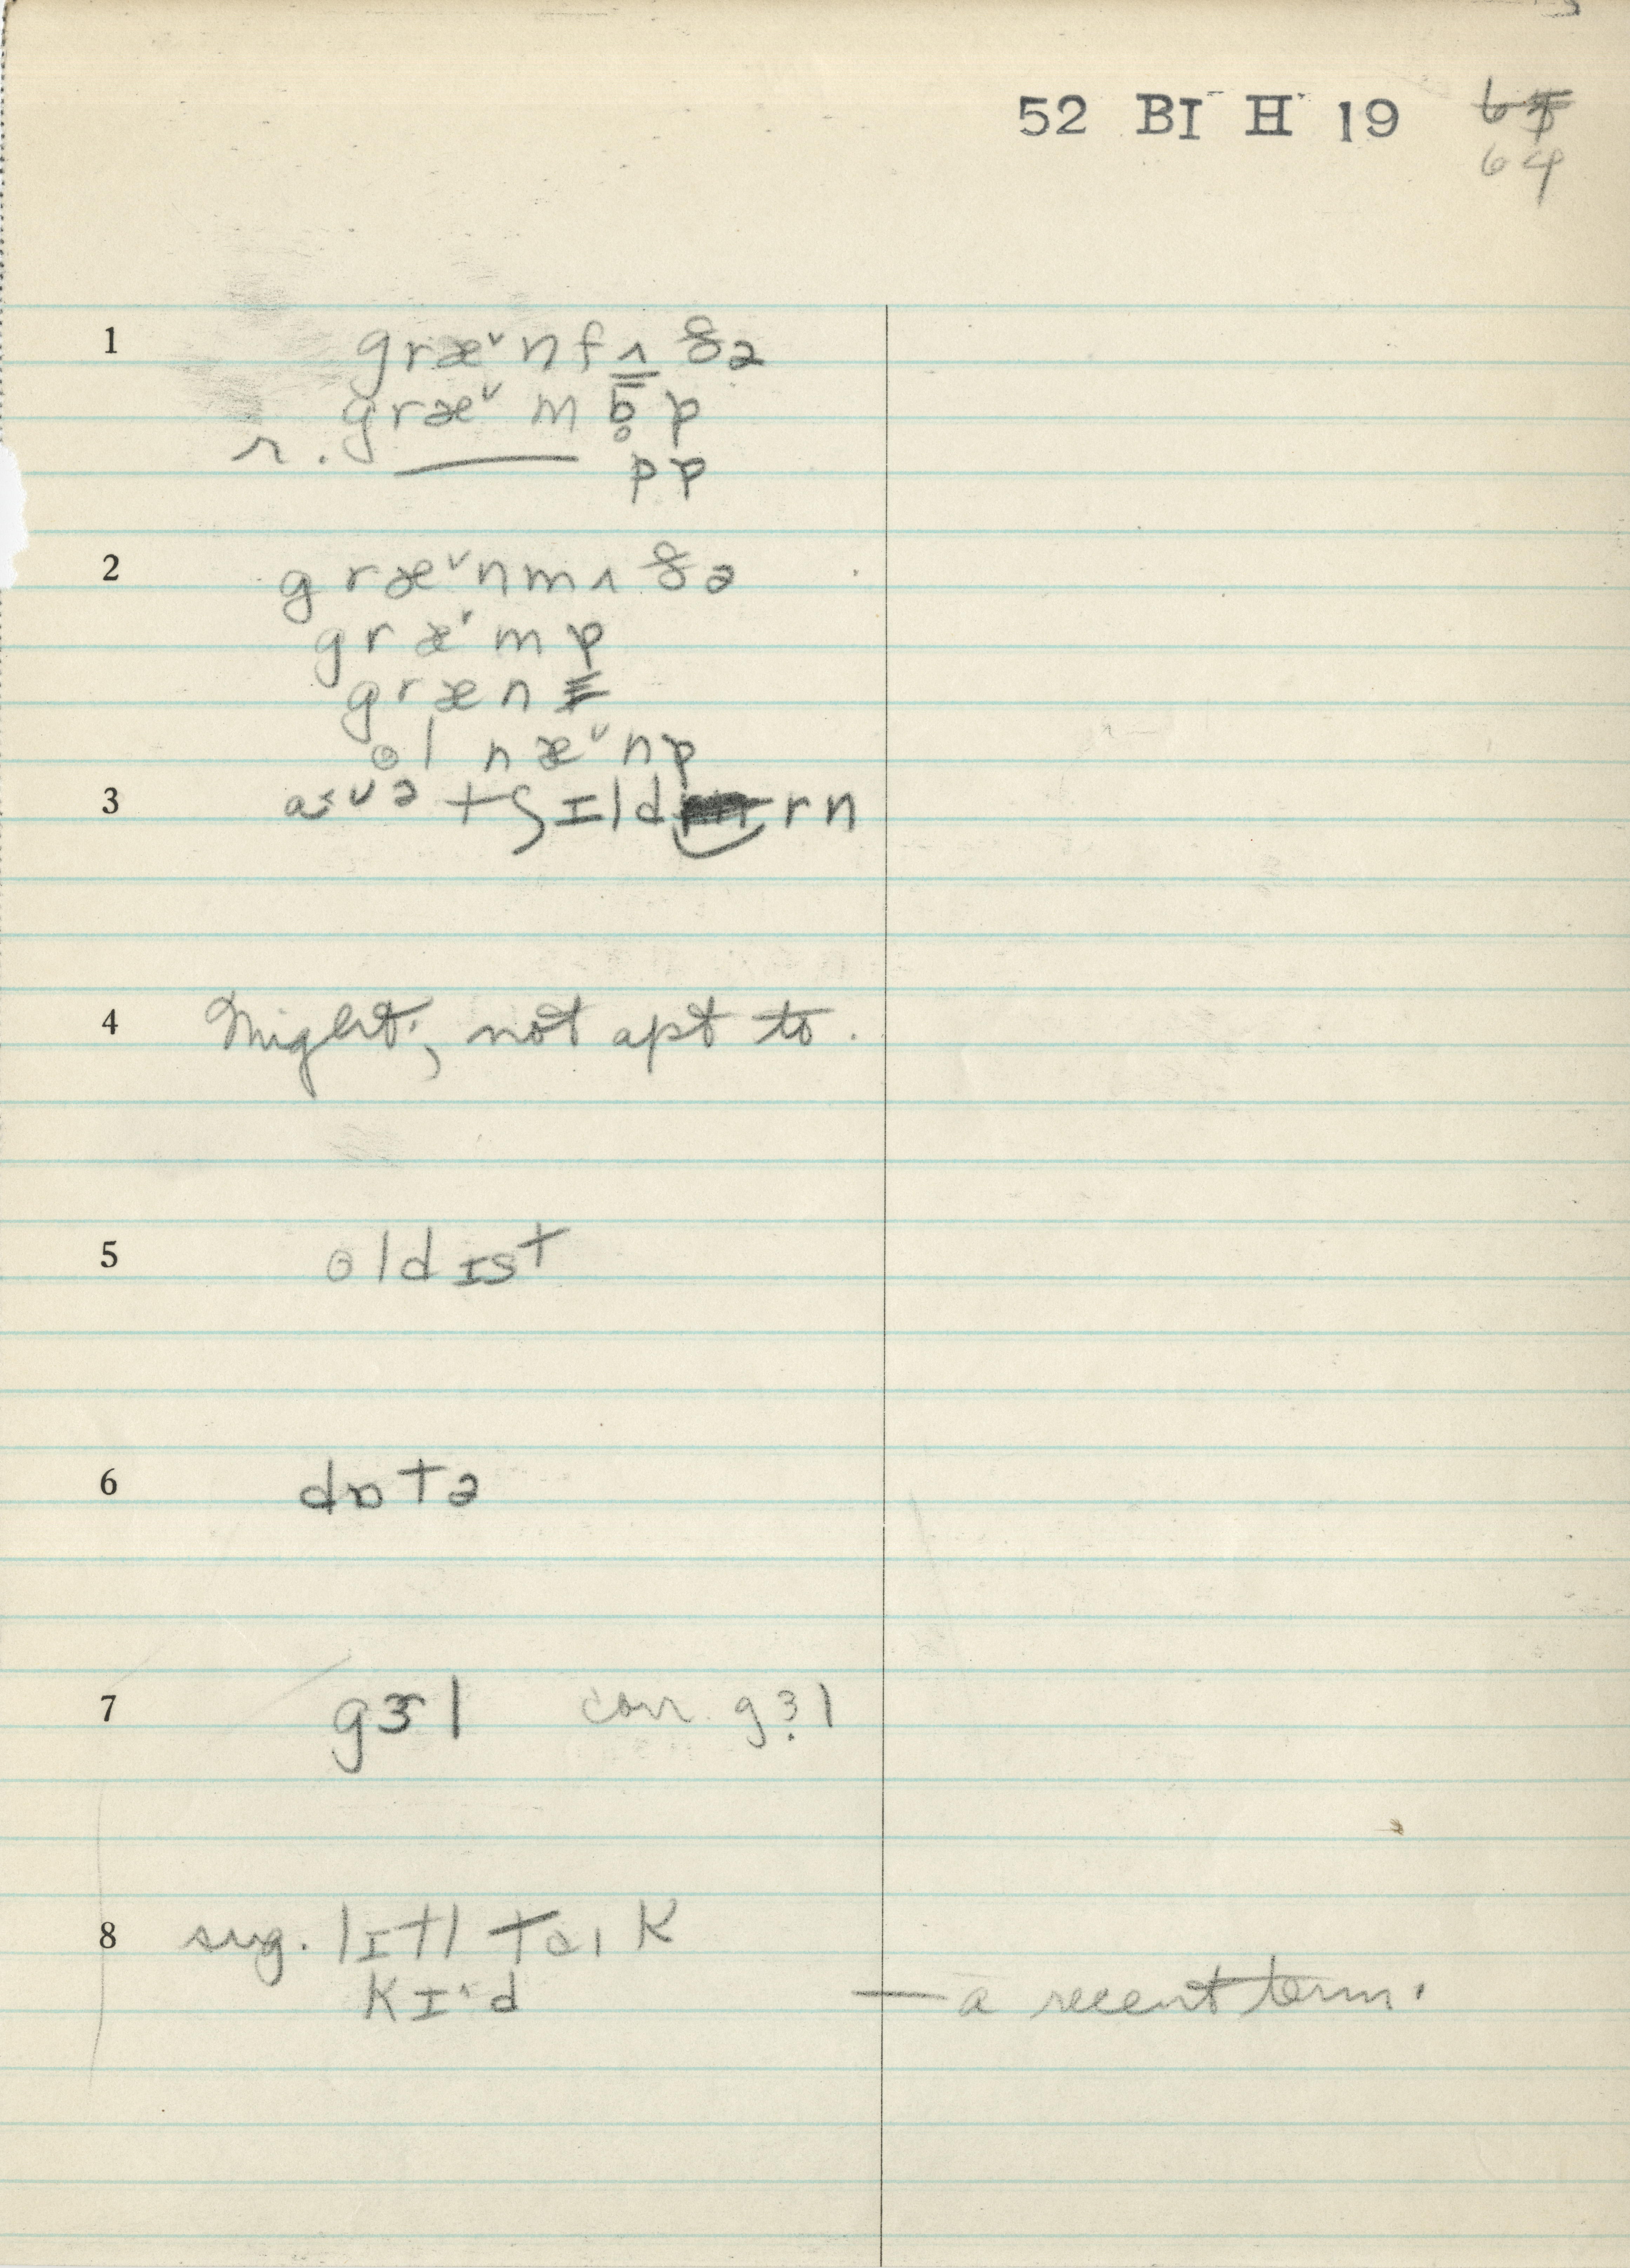 52 BI H 19
64
1 græ˅nfʌðə
græ˅mb̥p
r. pp
2 græ˅nmʌðə
græ˅mp
græn
ol næ˅np
3 tʃɪld rn
4 Might, not apt to.
5 oldɪst
6 dɒtə
7 gɝl corr. gɜl
8 sug. lɪtl K
Kɪ˄d — a recent term.